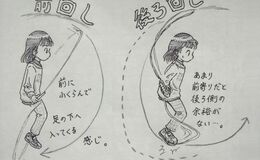 前回し
後ろ回し
前に
ふくらんで
足の下へ
入ってくる
感じ。
あまり
前寄りだと
後ろ側の
余裕が
ない…。